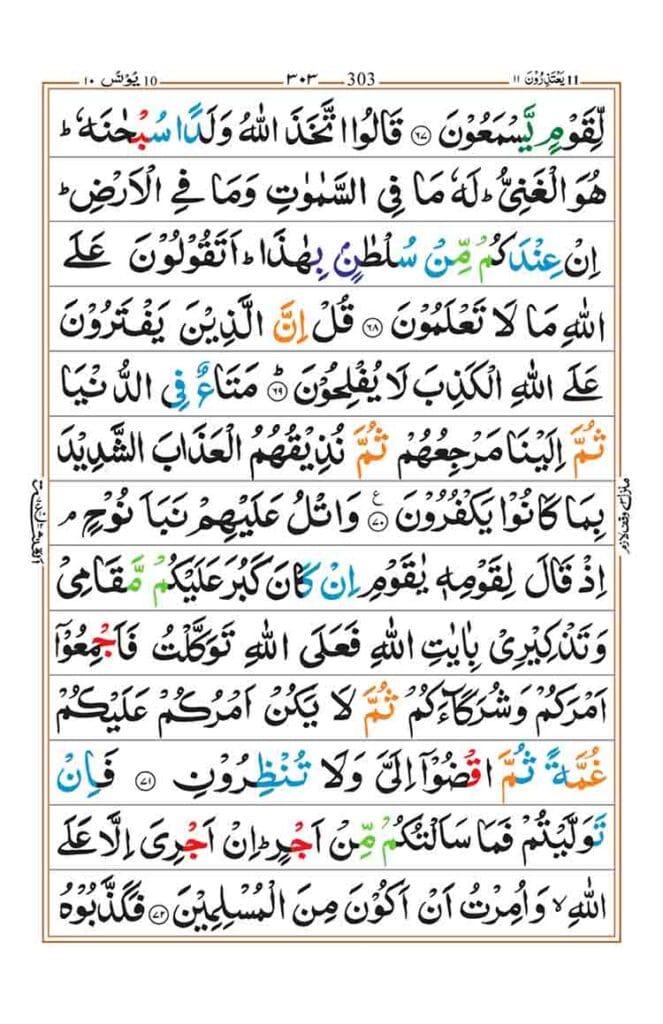 يَعْتَذِرُوْنَ ١١ 11 ٣٠٣ 303 يُوْنُس ١٠ 10
لِّقَوْمٍ يَّسْمَعُوْنَ ﴿٦٧﴾ قَالُوا اتَّخَذَ اللّٰهُ وَلَدًا سُبْحٰنَهٗ ؕ
هُوَ الْغَنِىُّ ؕ لَهٗ مَا فِى السَّمٰوٰتِ وَمَا فِى الْاَرْضِ ؕ
اِنْ عِنْدَكُمْ مِّنْ سُلْطٰنٍۭ بِهٰذَا ؕ اَتَقُوْلُوْنَ عَلَى
اللّٰهِ مَا لَا تَعْلَمُوْنَ ﴿٦٨﴾ قُلْ اِنَّ الَّذِيْنَ يَفْتَرُوْنَ
عَلَى اللّٰهِ الْكَذِبَ لَا يُفْلِحُوْنَ ؕ﴿٦٩﴾ مَتَاعٌ فِى الدُّنْيَا
ثُمَّ اِلَيْنَا مَرْجِعُهُمْ ثُمَّ نُذِيْقُهُمُ الْعَذَابَ الشَّدِيْدَ
بِمَا كَانُوْا يَكْفُرُوْنَ ﴿٧٠﴾ ع وَاتْلُ عَلَيْهِمْ نَبَاَ نُوْحٍ ۘ
اِذْ قَالَ لِقَوْمِهٖ يٰقَوْمِ اِنْ كَانَ كَبُرَ عَلَيْكُمْ مَّقَامِىْ
وَتَذْكِيْرِىْ بِاٰيٰتِ اللّٰهِ فَعَلَى اللّٰهِ تَوَكَّلْتُ فَاَجْمِعُوْۤا
اَمْرَكُمْ وَشُرَكَآءَكُمْ ثُمَّ لَا يَكُنْ اَمْرُكُمْ عَلَيْكُمْ
غُمَّةً ثُمَّ اقْضُوْۤا اِلَىَّ وَلَا تُنْظِرُوْنِ ﴿٧١﴾ فَاِنْ
تَوَلَّيْتُمْ فَمَا سَاَلْتُكُمْ مِّنْ اَجْرٍ ؕ اِنْ اَجْرِىَ اِلَّا عَلَى
اللّٰهِ ۙ وَاُمِرْتُ اَنْ اَكُوْنَ مِنَ الْمُسْلِمِيْنَ ﴿٧٢﴾ فَكَذَّبُوْهُ